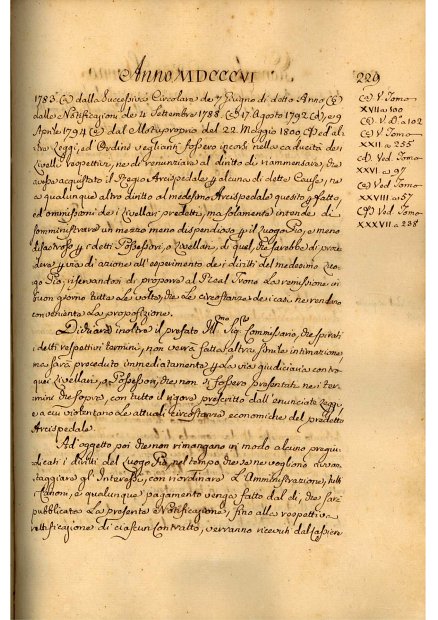 Anno MDCCCVI
229
1783 (a) dalla Successiva Circolare de 7 Giugno di detto Anno (b)
dalle Notificazioni de 4 Settembre 1788 (c) 17 Agosto 1792 (d), e 9
Aprile 1794 (e) dal Motuproprio del 22 Maggio 1800, (f) ed al
tre Leggi, ed Ordini veglianti fossero incorsi nella caducità dei
Livelli respettivi, ne di renunziare al diritto di riammensare, che
avesse acquistato il Regio Arcispedale p alcuna di dette Cause, ne
a qualunque altro diritto al medesimo Arcispedale quesito p fatto,
ed ommissioni dei Livellari predetti, ma solamente intende di
somministrare un mezzo meno dispendioso p il Luogo Pio, e meno
disastroso p i detti Possessori, o Livellari, di quel che sarebbe di proce
dere p via di azione all'esperimento dei diritti del medesimo Luo
go Pio, riservandosi di proporre al Real Trono la remissione in
buon giorno tutte le volte, che le circostanze dei casi ne rendino
conveniente la proposizione.
Dichiara inoltre il prefato Ill.mo Sig.r Commissario, che spirati
i detti respettivi termini, non verrà fatta altra simile intimazione,
ma sarà proceduto immediatamente p la via giudiciaria contro
quei Livellari, o Possessori, che non si fossero presentati nei ter
mini che sopra, con tutto il rigore prescritto dall'enunciate Leggi,
e a cui violentano le attuali circostanze economiche del predetto
Arcispedale.
Ad oggetto poi che non rimangano in modo alcuno pregiu
dicati i diritti del Luogo Pio, nel tempo che se ne vogliono
taggiare gl'Interessi, con riordinare L'Amministrazione, tutti
i Canoni, e qualunque pagamento venga fatto dal dì, che sarà
pubblicata La presente Notificazione, fino alla respettiva
rettificazione di ciascun Contratto, verranno ricevuti dal Cassiere
(a) V. Tomo
XVII a 100
(b) V. D.o a 102
(c) V. Tomo
XXII a 255
(d) Ved. Tomo
XXVI a 97
(e) Ved. Tomo
XXVIII a 57
(f) Ved. Tomo
XXXVII a 238